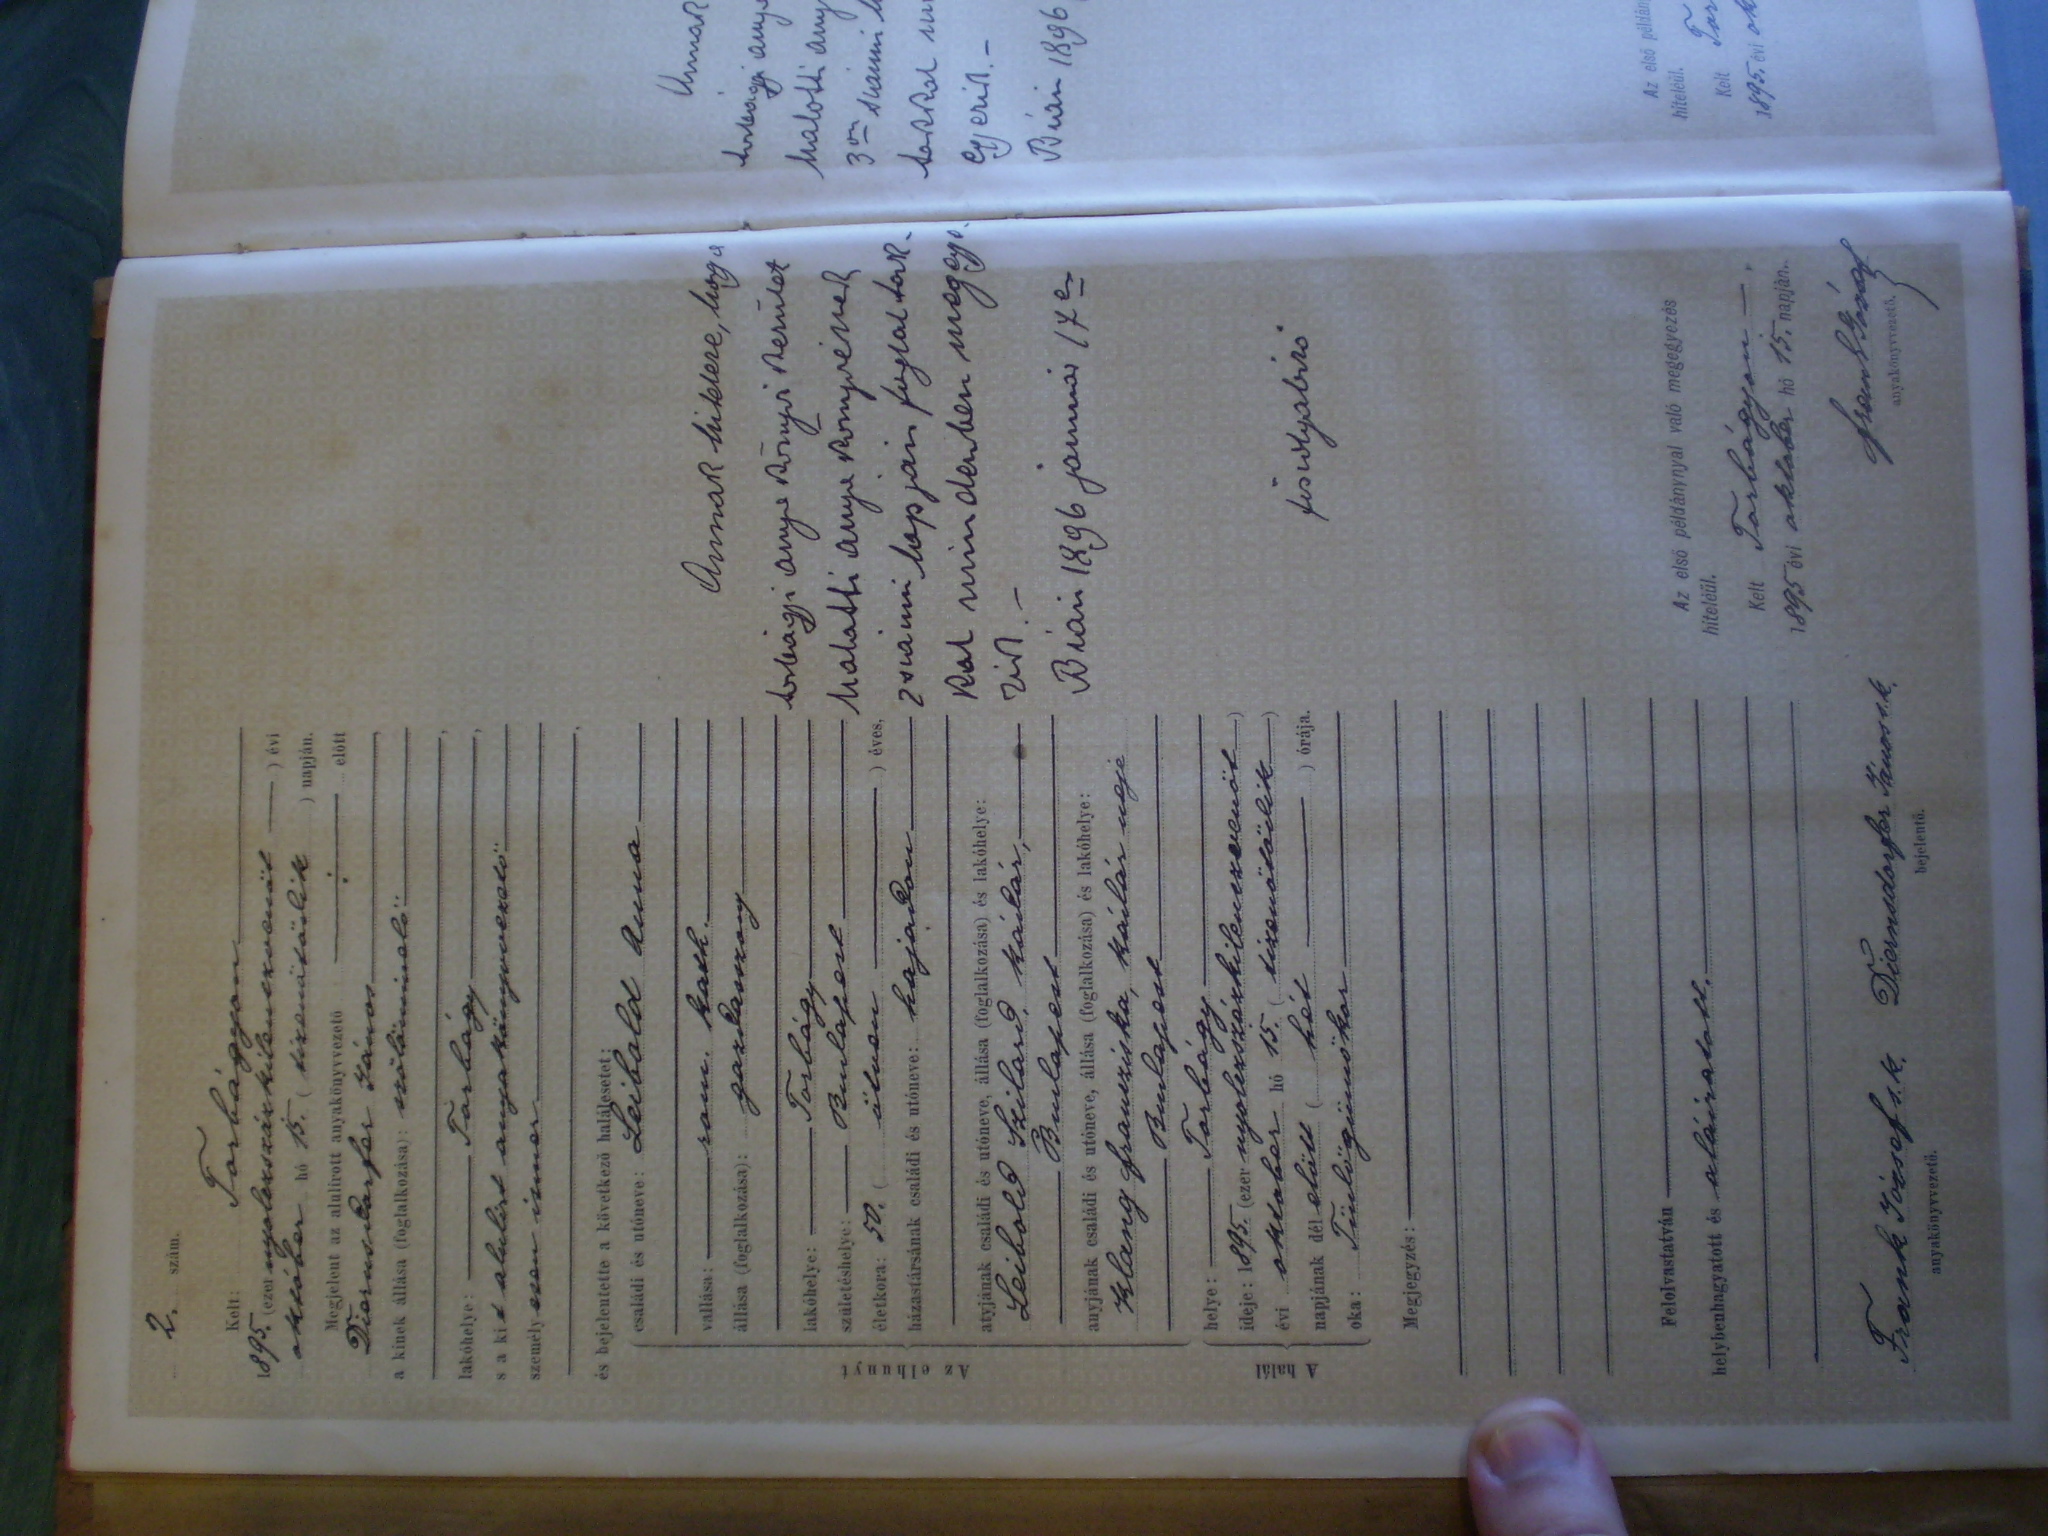 2. szám.
Kelt: Torbágyon
1895. (ezer nyolczszázkilenczvenöt) évi
október hó 15. (tizenötödik) napján.
Megjelent az alulirott anyakönyvvezető előtt
Diernsdorfer János
a kinek állása (foglalkozása): szőlőmivelő
lakóhelye: Torbágy
s a kit alulirt anyakönyvvezető
személyesen ismer
és bejelentette a következő halálesetet:
Az elhunyt
családi és utóneve: Leibold Anna
vallása: rom. kath.
állása (foglalkozása): gazdasszony
lakóhelye: Torbágy
születéshelye: Budapest
életkora: 50. (ötven) éves,
házastársának családi és utóneve: hajadon
atyjának családi és utóneve, állása (foglalkozása) és lakóhelye:
Leibold Szilárd, kádár,
Budapest
anyjának családi és utóneve, állása (foglalkozása) és lakóhelye:
Klang Francziska, kádár neje
Budapest
A halál
helye: Torbágy
ideje: 1895. (ezer nyolczszázkilenczvenöt)
évi október hó 15. (tizenötödik)
napjának dél előtt (hét) órája.
oka: Tüdőgümőkor
Megjegyzés:
Felolvastatván
helybenhagyatott és aláiratott.
Frank József s.k.
anyakönyvvezető.
Diernsdorfer János s.k.
bejelentő.
Annak hitelére, hogy a
torbágyi anyakönyvi kerület
halotti anyakönyvének
2 számu lapján foglaltak-
kal mindenben megegye-
zik.-
Bián 1896 január 17én
főszolgabíró
Az első példánynyal való megegyezés
hiteléül.
Kelt Torbágyon
1895 évi október hó 15. napján.
Frank József
anyakönyvvezető.
Annak
torbágyi anya
halotti any
3 számu l
takkal min
egyezik.-
Bián 1896
Az első példán
hiteléül.
Kelt Tor
1895. évi ok